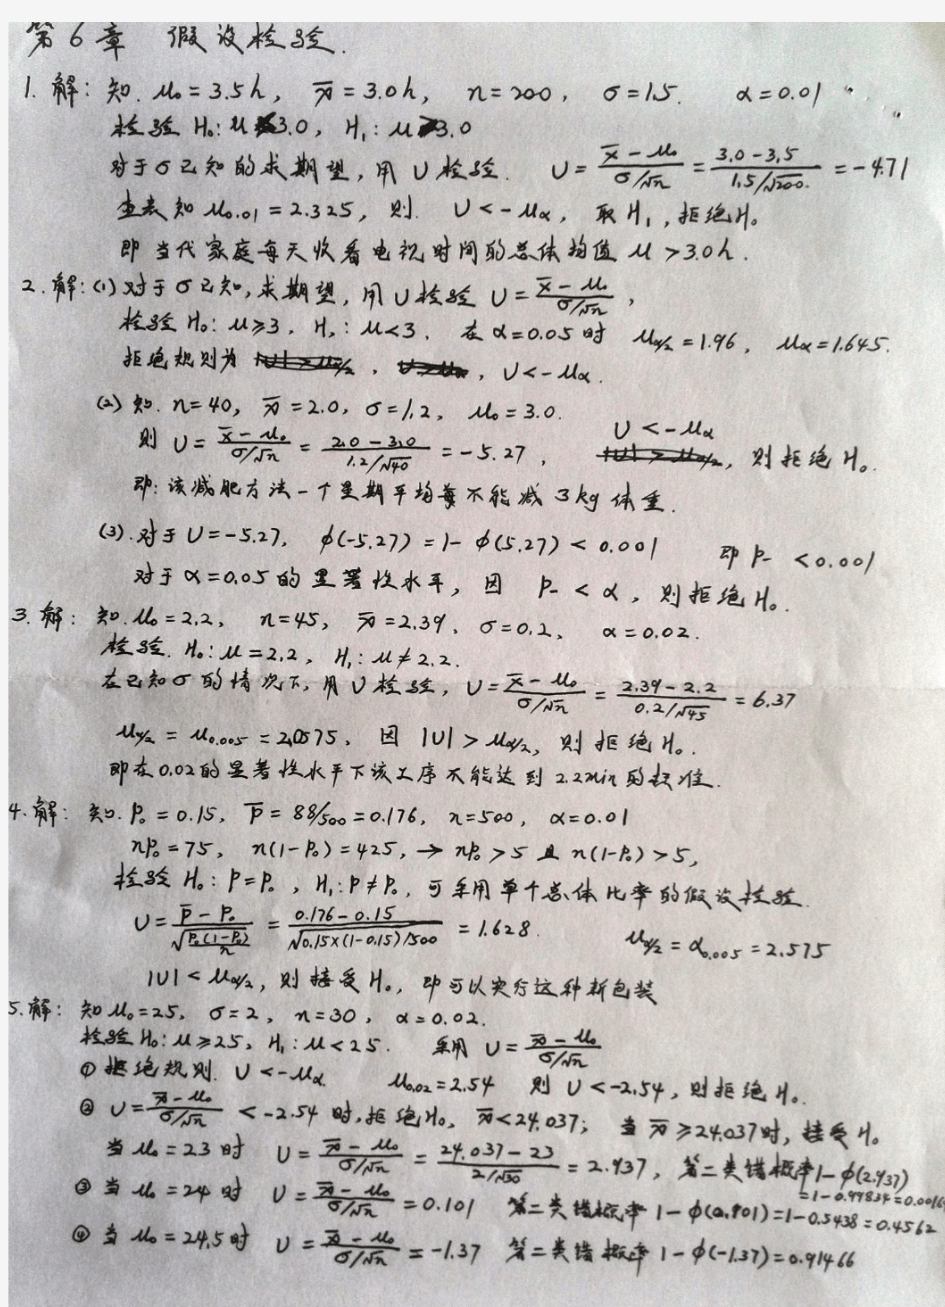 第6章 假设检验.
1. 解: 知 μ₀=3.5h, x̄=3.0h, n=200, σ=1.5. α=0.01
检验 H₀: μ 3.0, H₁: μ>3.0
对于σ已知的求期望, 用U检验. U=(x̄-μ₀)/(σ/√n)=(3.0-3.5)/(1.5/√200.)=-4.71
查表知 μ0.01=2.325, 则. U<-μα, 取H₁, 拒绝H₀
即 当代家庭每天收看电视时间的总体均值 μ>3.0h.
2. 解: (1) 对于σ已知, 求期望, 用U检验 U=(x̄-μ₀)/(σ/√n),
检验 H₀: μ≥3, H₁: μ<3. 在α=0.05时 μα/2=1.96, μα=1.645.
拒绝规则为 , , U<-μα.
(2) 知. n=40, x̄=2.0, σ=1.2, μ₀=3.0.
则 U=(x̄-μ₀)/(σ/√n)=(2.0-3.0)/(1.2/√40)=-5.27, U<-μα, 则拒绝H₀.
即: 该减肥方法一个星期平均每不能减3kg体重.
(3). 对于U=-5.27, φ(-5.27)=1-φ(5.27)<0.001 即 P- <0.001
对于α=0.05的显著性水平, 因 P- <α, 则拒绝H₀.
3. 解: 知. μ₀=2.2, n=45, x̄=2.39, σ=0.2, α=0.02.
检验. H₀: μ=2.2, H₁: μ≠2.2.
在已知σ的情况下, 用U检验, U=(x̄-μ₀)/(σ/√n)=(2.39-2.2)/(0.2/√45)=6.37
μα/2=μ0.005=2.0575, 因 |U|>μα/2, 则拒绝H₀.
即在0.02的显著性水平下该工序不能达到2.2min的标准.
4. 解: 知. P₀=0.15, P̄=88/500=0.176, n=500, α=0.01
nP₀=75, n(1-P₀)=425, → nP₀>5 且 n(1-P₀)>5,
检验 H₀: P=P₀, H₁: P≠P₀, 可采用单个总体比率的假设检验.
U=(P̄-P₀)/√(P₀(1-P₀)/n)=(0.176-0.15)/√(0.15×(1-0.15)/500)=1.628. μα/2=α0.005=2.575
|U|<μα/2, 则接受H₀, 即可以实行这种新包装
5. 解: 知μ₀=25, σ=2, n=30, α=0.02.
检验H₀: μ≥25, H₁: μ<25. 采用 U=(x̄-μ₀)/(σ/√n)
① 拒绝规则. U<-μα. μ0.02=2.54 则 U<-2.54, 则拒绝H₀.
② U=(x̄-μ₀)/(σ/√n)<-2.54时, 拒绝H₀, x̄<24.037; 当x̄≥24.037时, 接受H₀
当μ₀=23时 U=(x̄-μ₀)/(σ/√n)=(24.037-23)/(2/√30)=2.937, 第二类错概率1-φ(2.937)
=1-0.99834=0.00166
③ 当μ₀=24时 U=(x̄-μ₀)/(σ/√n)=0.101 第二类错概率 1-φ(0.101)=1-0.5438=0.4562
④ 当μ₀=24.5时 U=(x̄-μ₀)/(σ/√n)=-1.37 第二类错概率 1-φ(-1.37)=0.91466